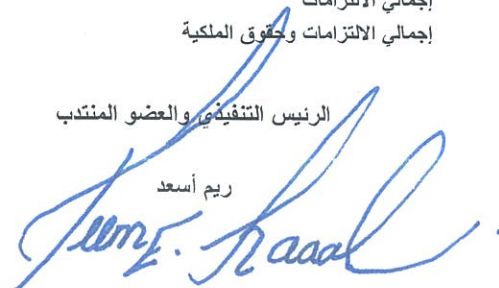 إجمالي الالتزامات
إجمالي الالتزامات وحقوق الملكية
الرئيس التنفيذي والعضو المنتدب
ريم أسعد